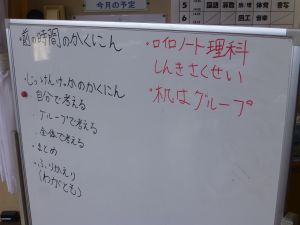 今月の予定
5 国語 算数 体育 書写
6
・前の時間のかくにん
・じっけんけっかのかくにん
・自分で考える
・グループで考える
・全体で考える
・まとめ
・ふりかえり
(わがとも)
・ロイロノート理科
しんきさくせい
・机はグループ